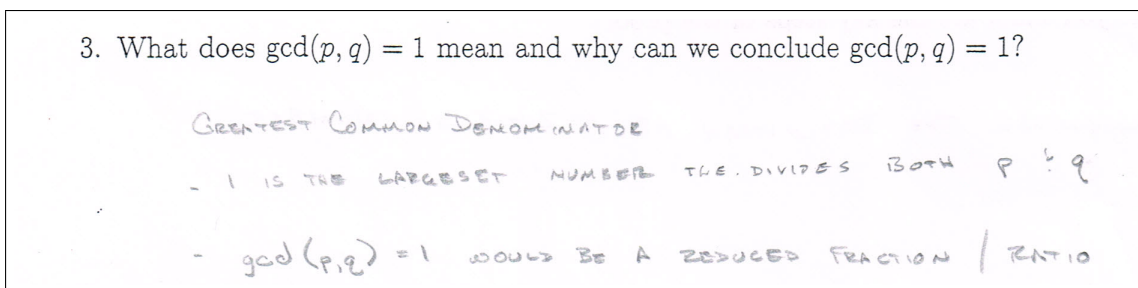 3. What does gcd(p, q) = 1 mean and why can we conclude gcd(p, q) = 1?
GREATEST COMMON DENOMINATOR
- 1 IS THE LARGESET NUMBER THE. DIVIDES BOTH p & q
- gcd (p,q) = 1 WOULD BE A REDUCED FRACTION / RATIO